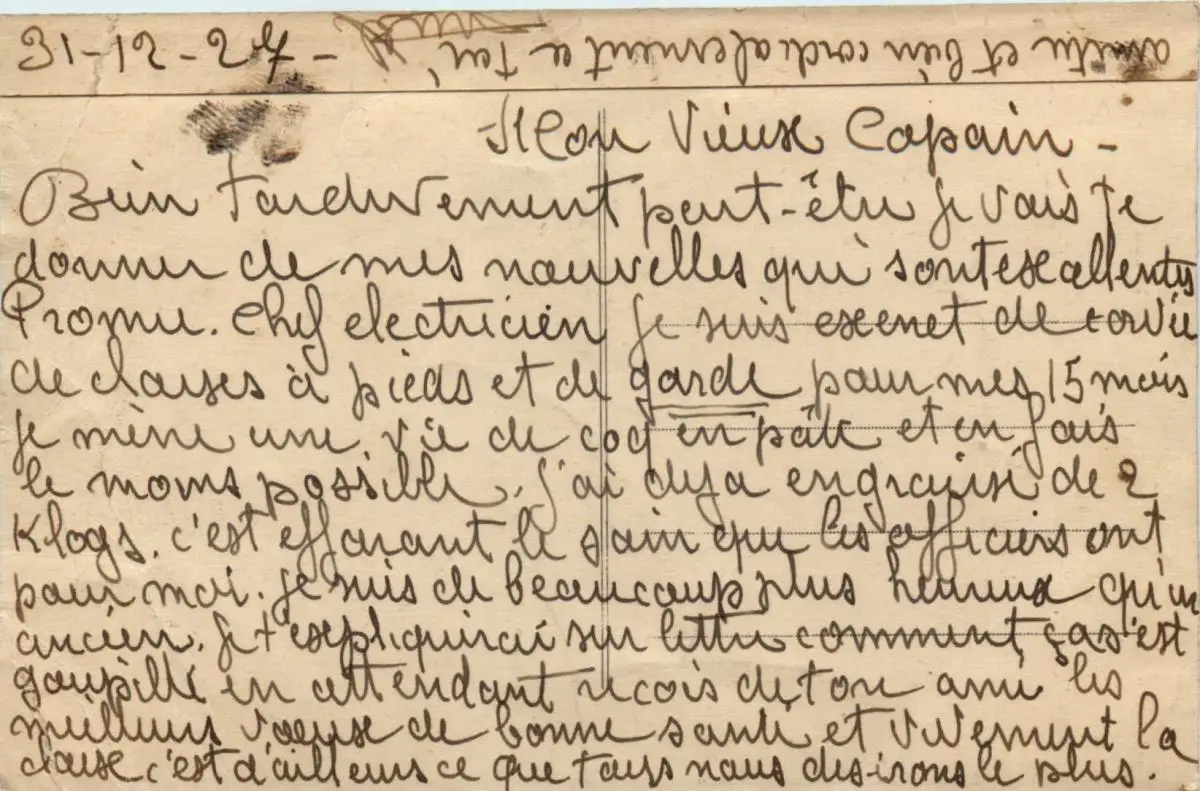 31-12-27-
Mon Vieux Copain -
Bien Tardivement peut-être je vais te
donner de mes nouvelles qui sont excellentes
Promu. Chef electricien je suis exenet de corvée
de classes à pieds et de garde pour mes 15 mois
je mène une vie de coq en pâte et en fais
le moins possible. j'ai deja engraissé de 2
Klogs. c'est effarant le soin que les officiers ont
pour moi. je suis de beaucoup plus heureux qu'un
ancien. Je t'expliquerai sur lettre comment ça s'est
goupillé en attendant recois de ton ami les
meilleurs voeux de bonne santé et Vivement la
classe c'est d'ailleurs ce que tous nous desirons le plus.
amitié et bien cordialement a Toi